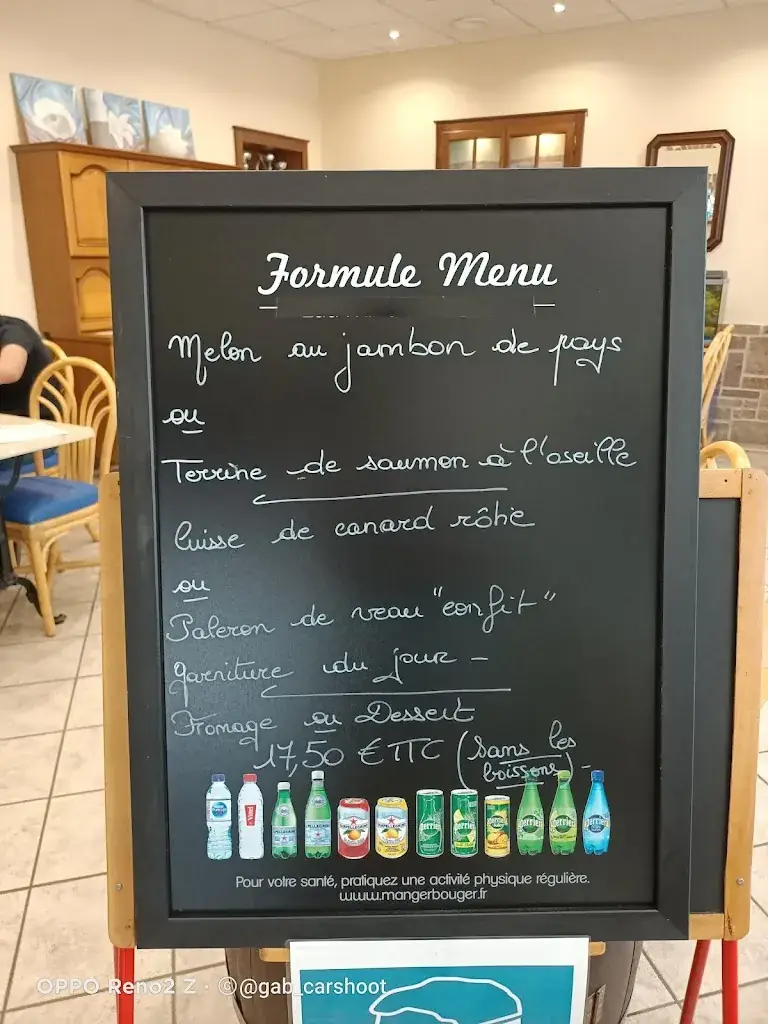 Formule Menu
Melon au jambon de pays
ou
Terrine de saumon à l'oseille
Cuisse de canard rôtie
ou
Paleron de veau "confit"
garniture du jour -
Fromage ou Dessert
17,50 € TTC (Sans les
boissons) -
Pour votre santé, pratiquez une activité physique régulière.
www.mangerbouger.fr
OPPO Reno2 Z · ©@gab_carshoot